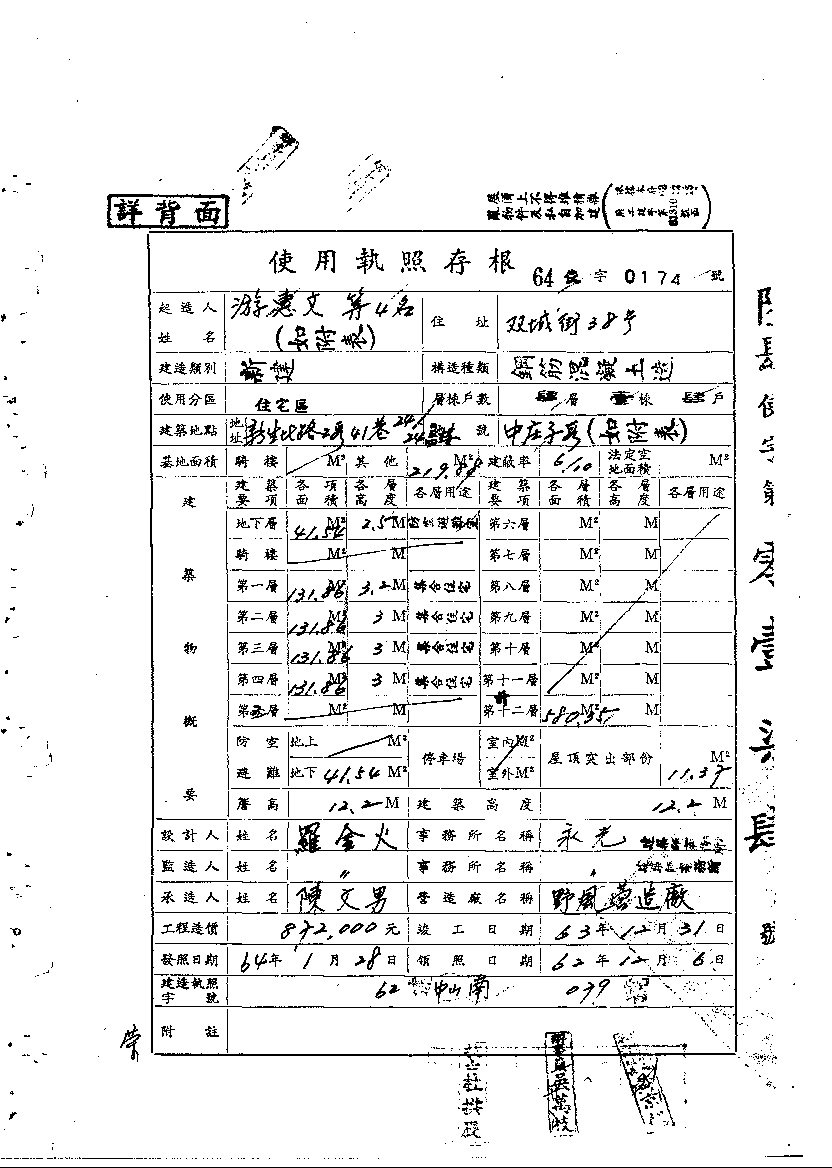 詳背面
使用執照存根
64 字 0174 號
起造人姓名 游惠文等4名(如附表) 住址 双城街38号
建造類別 新建 構造種類 鋼筋混凝土造
使用分區 住宅區 層棟戶數 肆層 壹棟 肆戶
建築地點 地址 新生北路2段41巷 號 中庄子段(如附表)
基地面積 騎樓 M² 其他 219.88 M² 建蔽率 6/10 法定空地面積 M²
建築物概要 建築要項 各項面積 各層高度 各層用途 建築要項 各層面積 各層高度 各層用途
地下層 41.54 M² 2.5 M 第六層 M² M
騎樓 M² M 第七層 M² M
第一層 131.86 M² 3.2 M 集合住宅 第八層 M² M
第二層 131.86 M² 3 M 集合住宅 第九層 M² M
第三層 131.86 M² 3 M 集合住宅 第十層 M² M
第四層 131.86 M² 3 M 集合住宅 第十一層 M² M
第五層 M² M 第十二層 M² M
防空避難 地上 M² 停車場 室內 M² 屋頂突出部份 M²
地下 41.54 M² 室外 M² 11.37
簷高 12.2 M 建築高度 12.2 M
設計人 姓名 羅金火 事務所名稱 永光
監造人 姓名 〃 事務所名稱 〃
承造人 姓名 陳文男 營造廠名稱 野風營造廠
工程造價 872,000元 竣工日期 63年12月31日
發照日期 64年1月28日 領照日期 62年12月6日
建造執照字號 62 中山南 079
附註